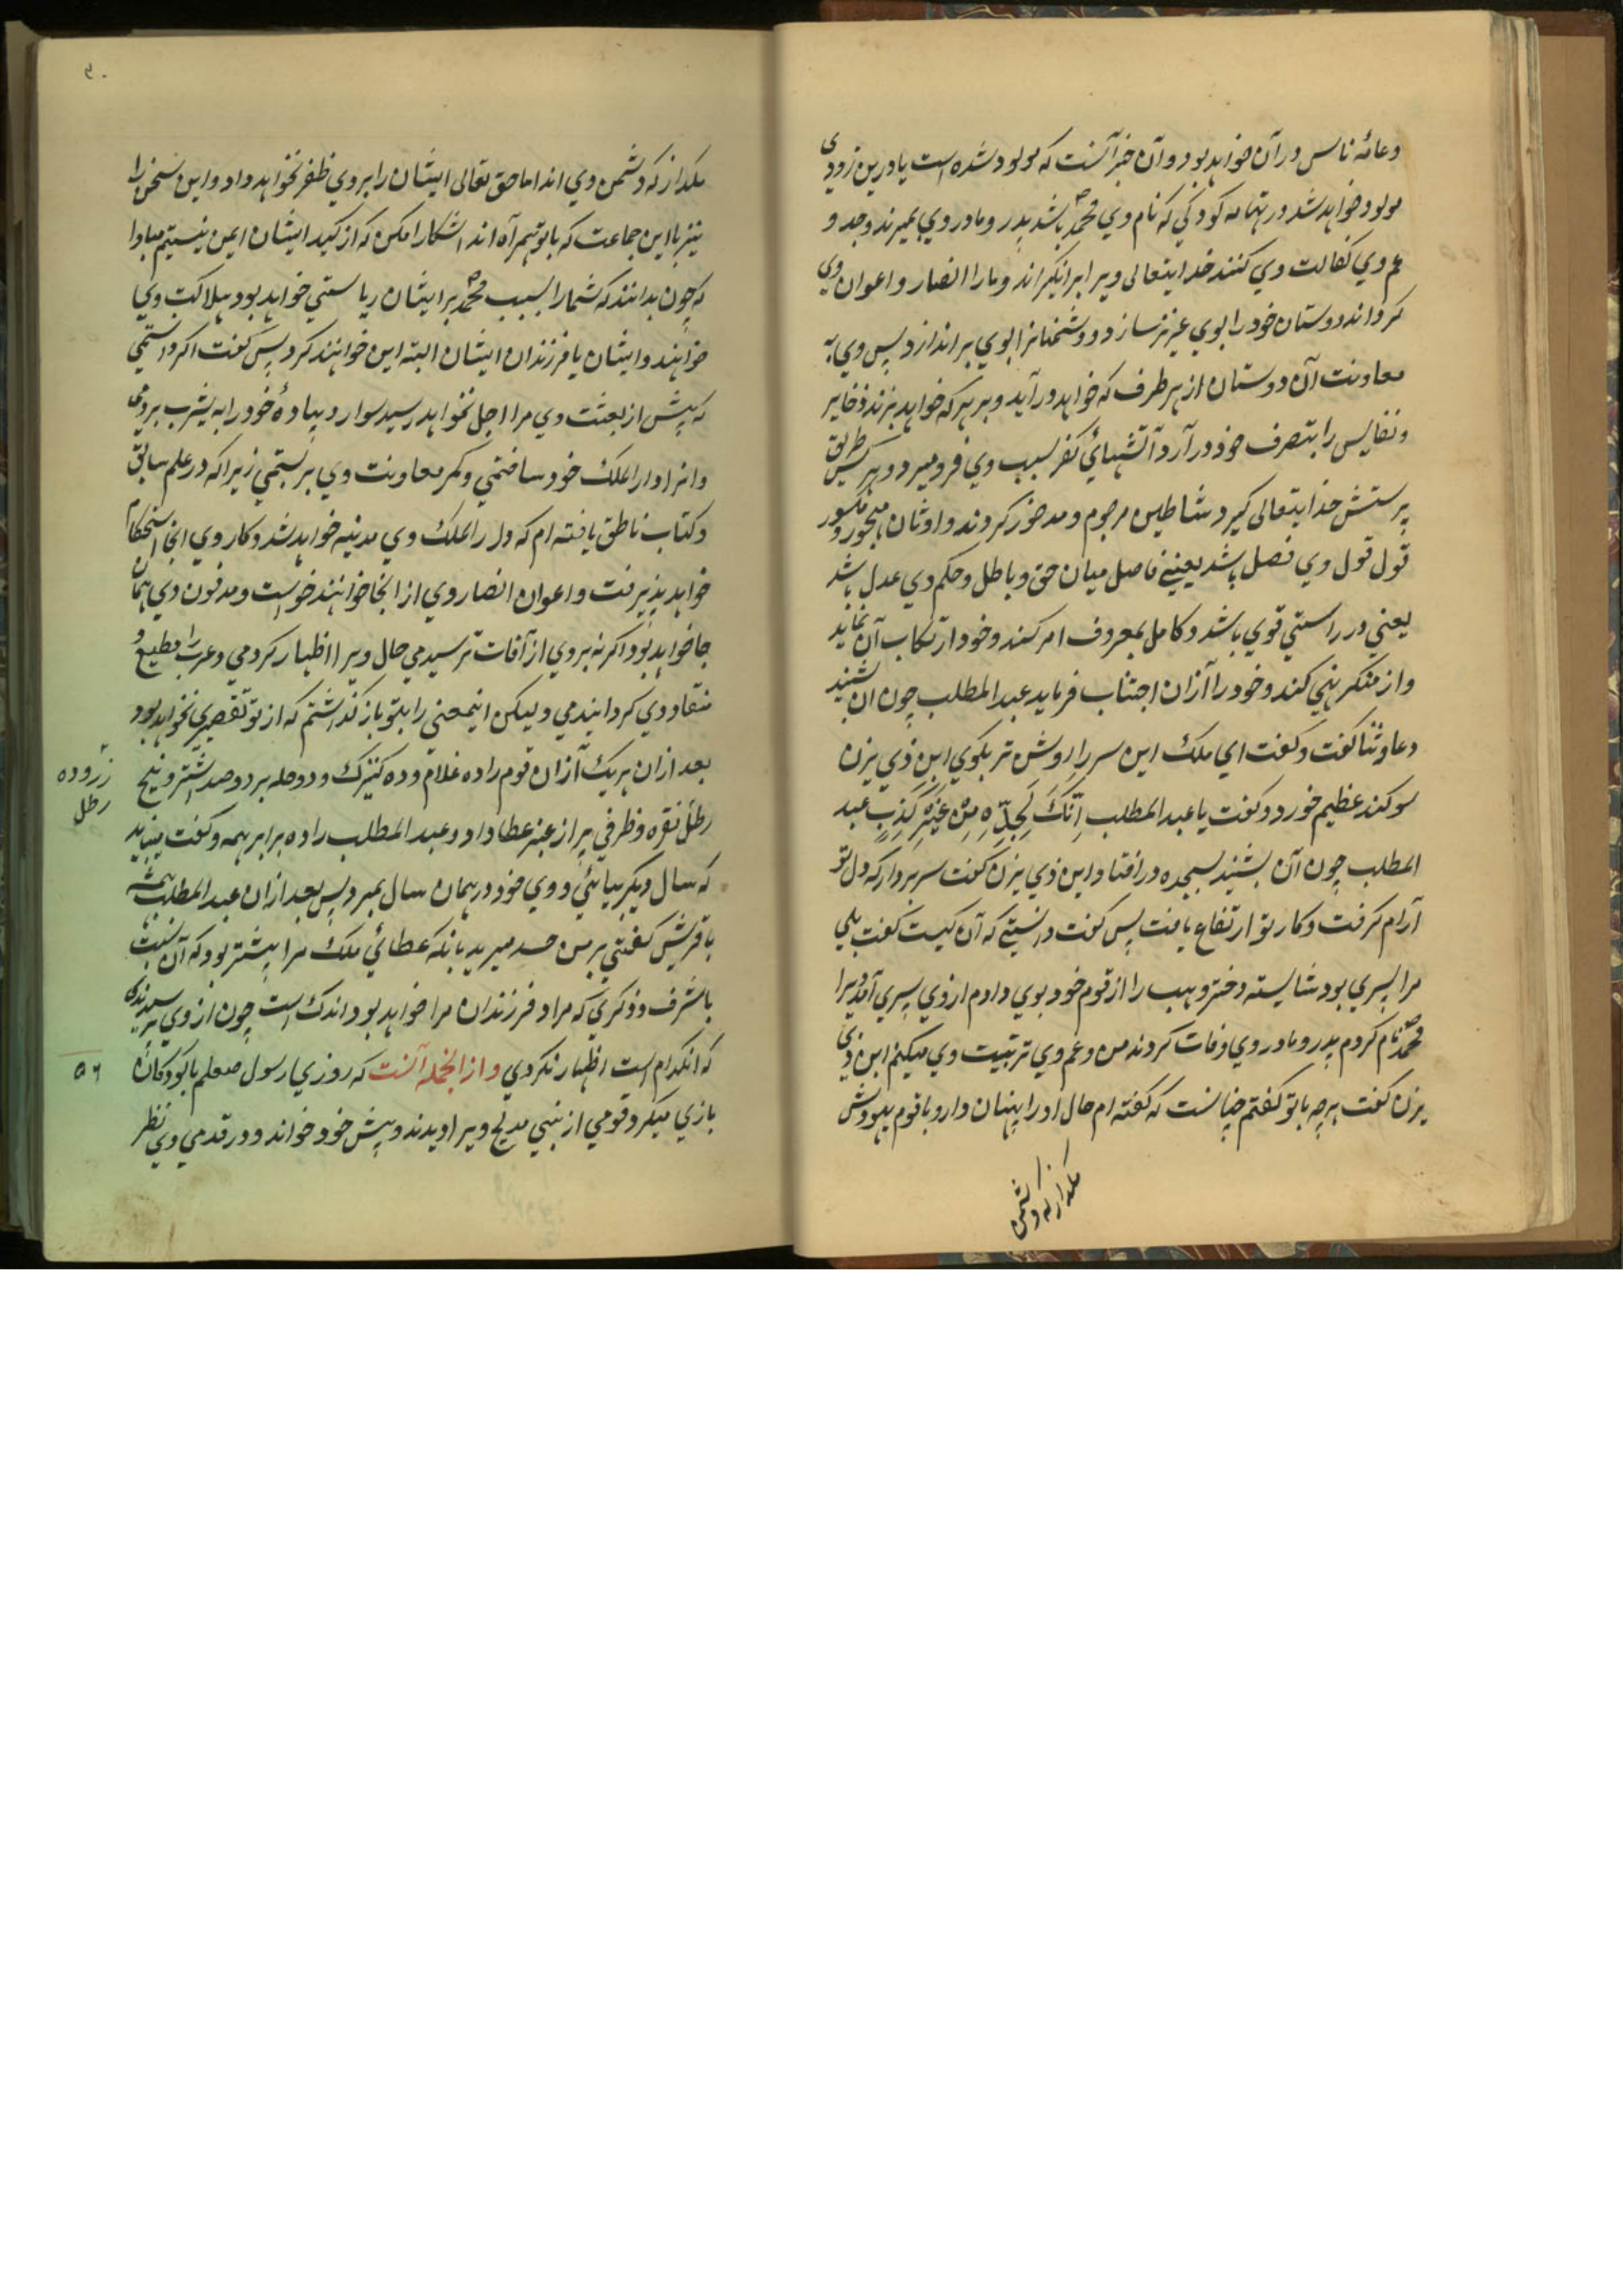 وعامّه ناس در آن خواهد بود و آن خبر آنست که مولود شده است یا درین زودی
مولود خواهد شد در تهامه کودکی که نام وی محمد باشد پدر و مادر وی بمیرند و جد و
عم وی کفالت وی کنند خدایتعالی ویرا برانگیزاند و مارا انصار و اعوان وی
گرداند دوستان خود را بوی عزیز سازد و دشمنانرا بوی براندازد پس وی به
معاونت آن دوستان از هر طرف که خواهد درآید و بر هر که خواهد بزند ذخایر
و نفایس را بتصرف خود درآرد آتشهائی کفر بسبب وی فرو میرد و هرکس طریق
پرستش خدایتعالی گیرد شیاطین مرجوم و مدحور گردند و اوثان مهجور و مکسور
قول قول وی فصل باشد یعنی فاصل میان حق و باطل و حکم وی عدل باشد
یعنی در راستی قوی باشد و کامل بمعروف امر کند و خود ارتکاب آن نماید
و از منکر نهی کند و خود را از آن اجتناب فرماید عبدالمطلب چون آن بشنید
دعا و ثنا گفت و گفت ای ملک این سر را روشن تر بگوی ابن ذی یزن
سوگند عظیم خورد و گفت یا عبدالمطلب اِنَّکَ لَجَدُّهُ مِنْ غَیْرِ کَذِبٍ عبد
المطلب چون آن بشنید بسجده در افتاد ابن ذی یزن گفت سر بردار که دل تو
آرام گرفت و کار تو ارتفاع یافت پس گفت دانستی که آن کیست گفت بلی
مرا پسری بود شایسته دختر وهب را از قوم خود بوی دادم از وی پسری آمد ویرا
محمد نام کردم پدر و مادر وی وفات کردند من و عم وی تربیت وی میکنیم ابن ذی
یزن گفت هرچه با تو گفتم چنانست که گفته ام حال او را پنهان دار و با قوم یهودش
مگذار که دشمن
۹۰
مگذار که دشمن وی اند اما حق تعالی ایشان را بر وی ظفر نخواهد داد و این سخن را
نیز با این جماعت که با تو همراه اند آشکارا مکن که از کید ایشان ایمن نیستم مبادا
که چون بدانند که شما را بسبب محمد بر ایشان ریاستی خواهد بود هلاکت وی
خواهند و ایشان یا فرزندان ایشان البته این خواهند کرد پس گفت اگر دانستمی
که پیش از بعثت وی مرا اجل نخواهد رسید سوار و پیادهٔ خود را به یثرب بردمی
وانرا دار الملک خود ساختمی و کمر معاونت وی بر بستمی زیرا که در علم سابق
و کتاب ناطق یافته ام که دار الملک وی مدینه خواهد شد و کار وی آنجا استحکام
خواهد پذیرفت و اعوان انصار وی از آنجا خواهند خواست و مدفون وی همان
جا خواهد بود اگر نه بر وی از آفات ترسیدمی حال ویرا اظهار کردمی و عرب را مطیع و
منقاد وی گردانیدمی و لیکن اینمعنی را بتو باز گذاشتم که از تو تقصیری نخواهد بود
بعد ازان هریک از آن قوم را ده غلام و ده کنیزک و دو حله برد و صد شتر و پنج
زر و ده رطل
رطل نقره و ظرفی پر از عنبر عطا داد و عبدالمطلب را ده برابر همه و گفت بیاید
که سال دیگر بیائی و وی خود در همان سال بمرد پس بعد ازان عبدالمطلب همیشه
با قریش گفتی بر من حسد میرید بانکه عطائی ملک مرا بیشتر بود که آن نسبت
با شرف و ذکری که مرا و فرزندان مرا خواهد بود اندک است چون از وی پرسیدندی
که آن کدام است اظهار نکردی و از آنجمله آنست که روزی رسول صلعم با کودکان
۵۶
بازی میکرد قومی از بنی مدلج ویرا دیدند و پیش خود خواند و در قدمی وی نظر